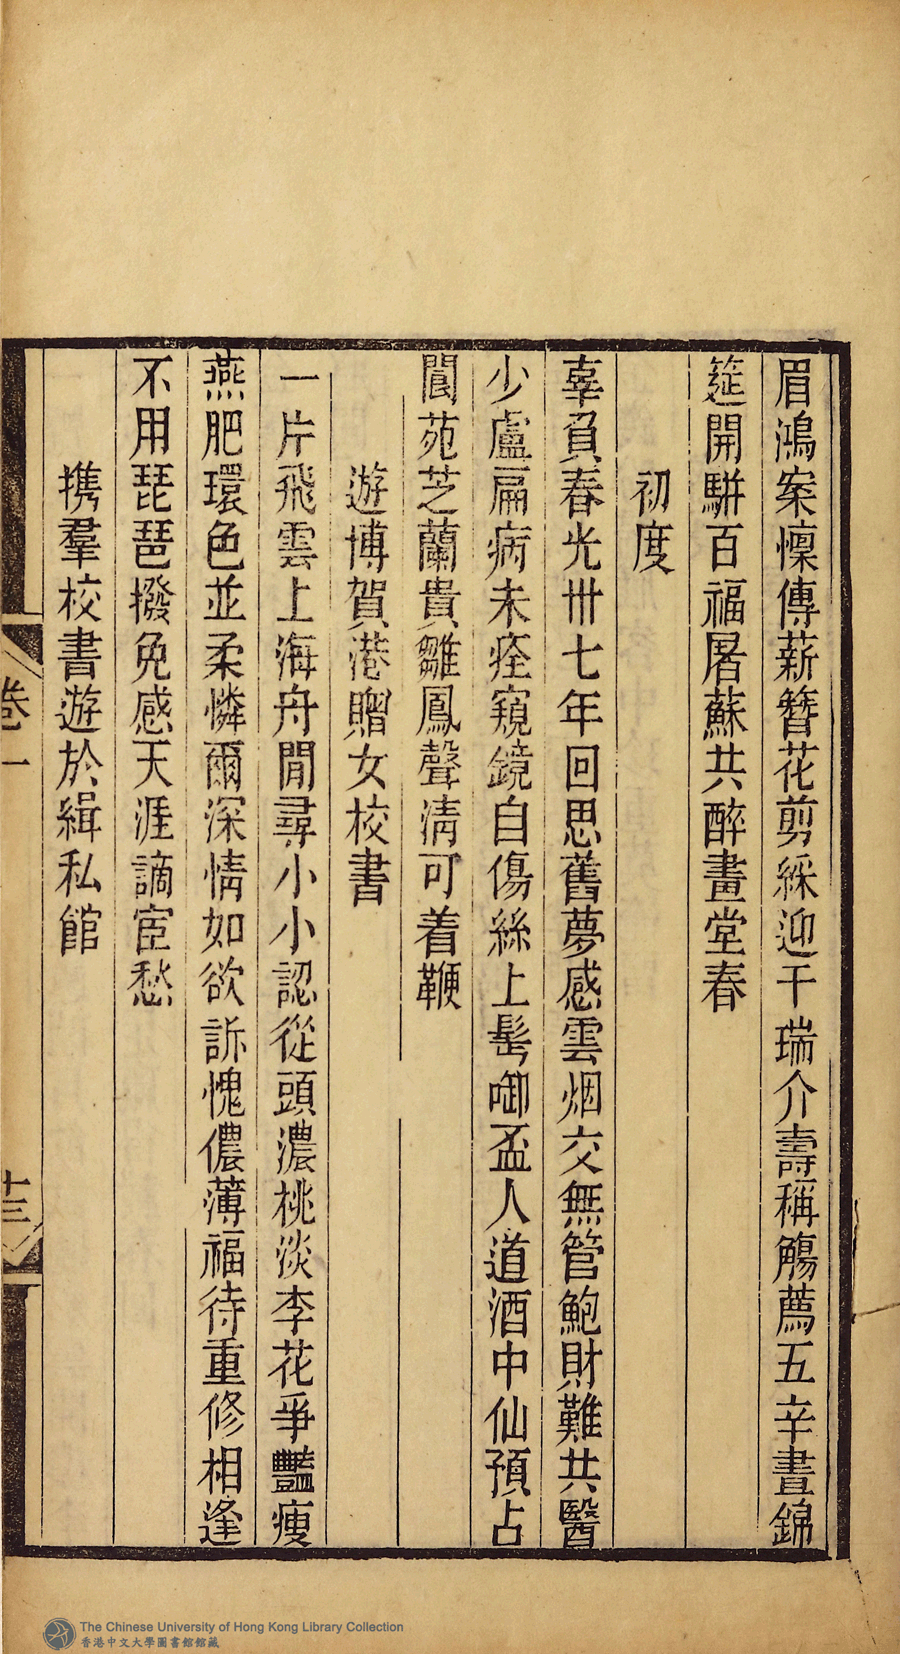 眉鴻案懍傳薪簪花剪綵迎千瑞介壽稱觴薦五辛晝錦
筵開駢百福屠蘇共醉畫堂春
初度
辜負春光卅七年回思舊夢感雲烟交無管鮑財難共醫
少盧扁病未痊窺鏡自傷絲上髩啣盃人道酒中仙預占
閬苑芝蘭貴雛鳳聲清可着鞭
遊博賀港贈女校書
一片飛雲上海舟閒尋小小認從頭濃桃淡李花爭豔瘦
燕肥環色並柔憐爾深情如欲訴愧儂薄福待重修相逢
不用琵琶撥免感天涯謫宦愁
携羣校書遊於緝私館
卷一
十三
The Chinese University of Hong Kong Library Collection
香港中文大學圖書館館藏